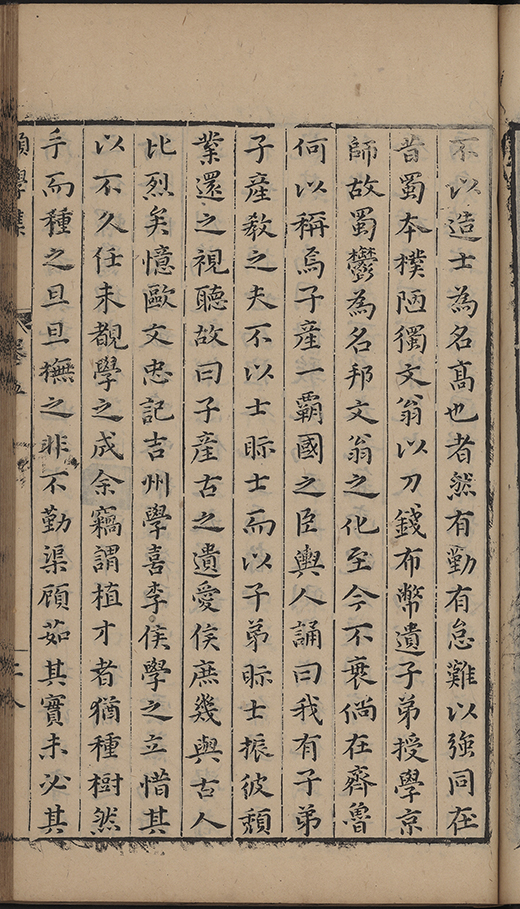 不以造士為名髙也者然有勤有怠難以強同在
昔蜀本樸陋獨文翁以刀錢布幣遺子弟授學京
師故蜀鬱為名邦文翁之化至今不衰倘在齊魯
何以稱焉子產一霸國之臣輿人誦曰我有子弟
子產教之夫不以士眎士而以子弟眎士振彼頹
業還之視聽故曰子產古之遺愛侯庶幾與古人
比烈矣憶歐文忠記吉州學喜李侯學之立惜其
以不久任未覩學之成余竊謂植才者猶種樹然
手而種之旦旦撫之非不勤渠顧茹其實未必其